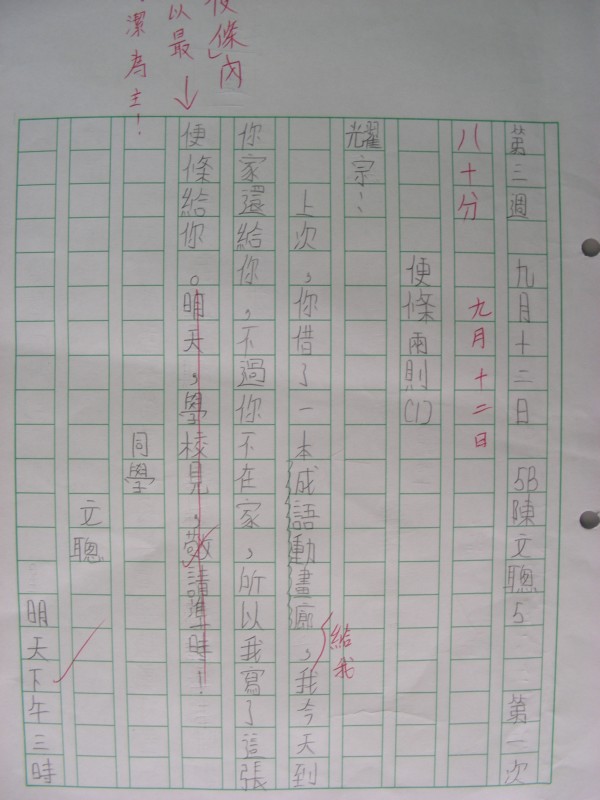 第三週 九月十二日 5B陳文聰5 第一次
八十分 九月十二日
便條兩則(1)
耀宗：
上次，你借了一本成語動畫廊，我今天到
給我
你家還給你，不過你不在家，所以我寫了這張
便條給你。明天，學校見，敬請準時！
同學
文聰
明天下午三時
條內
以最
潔為主！